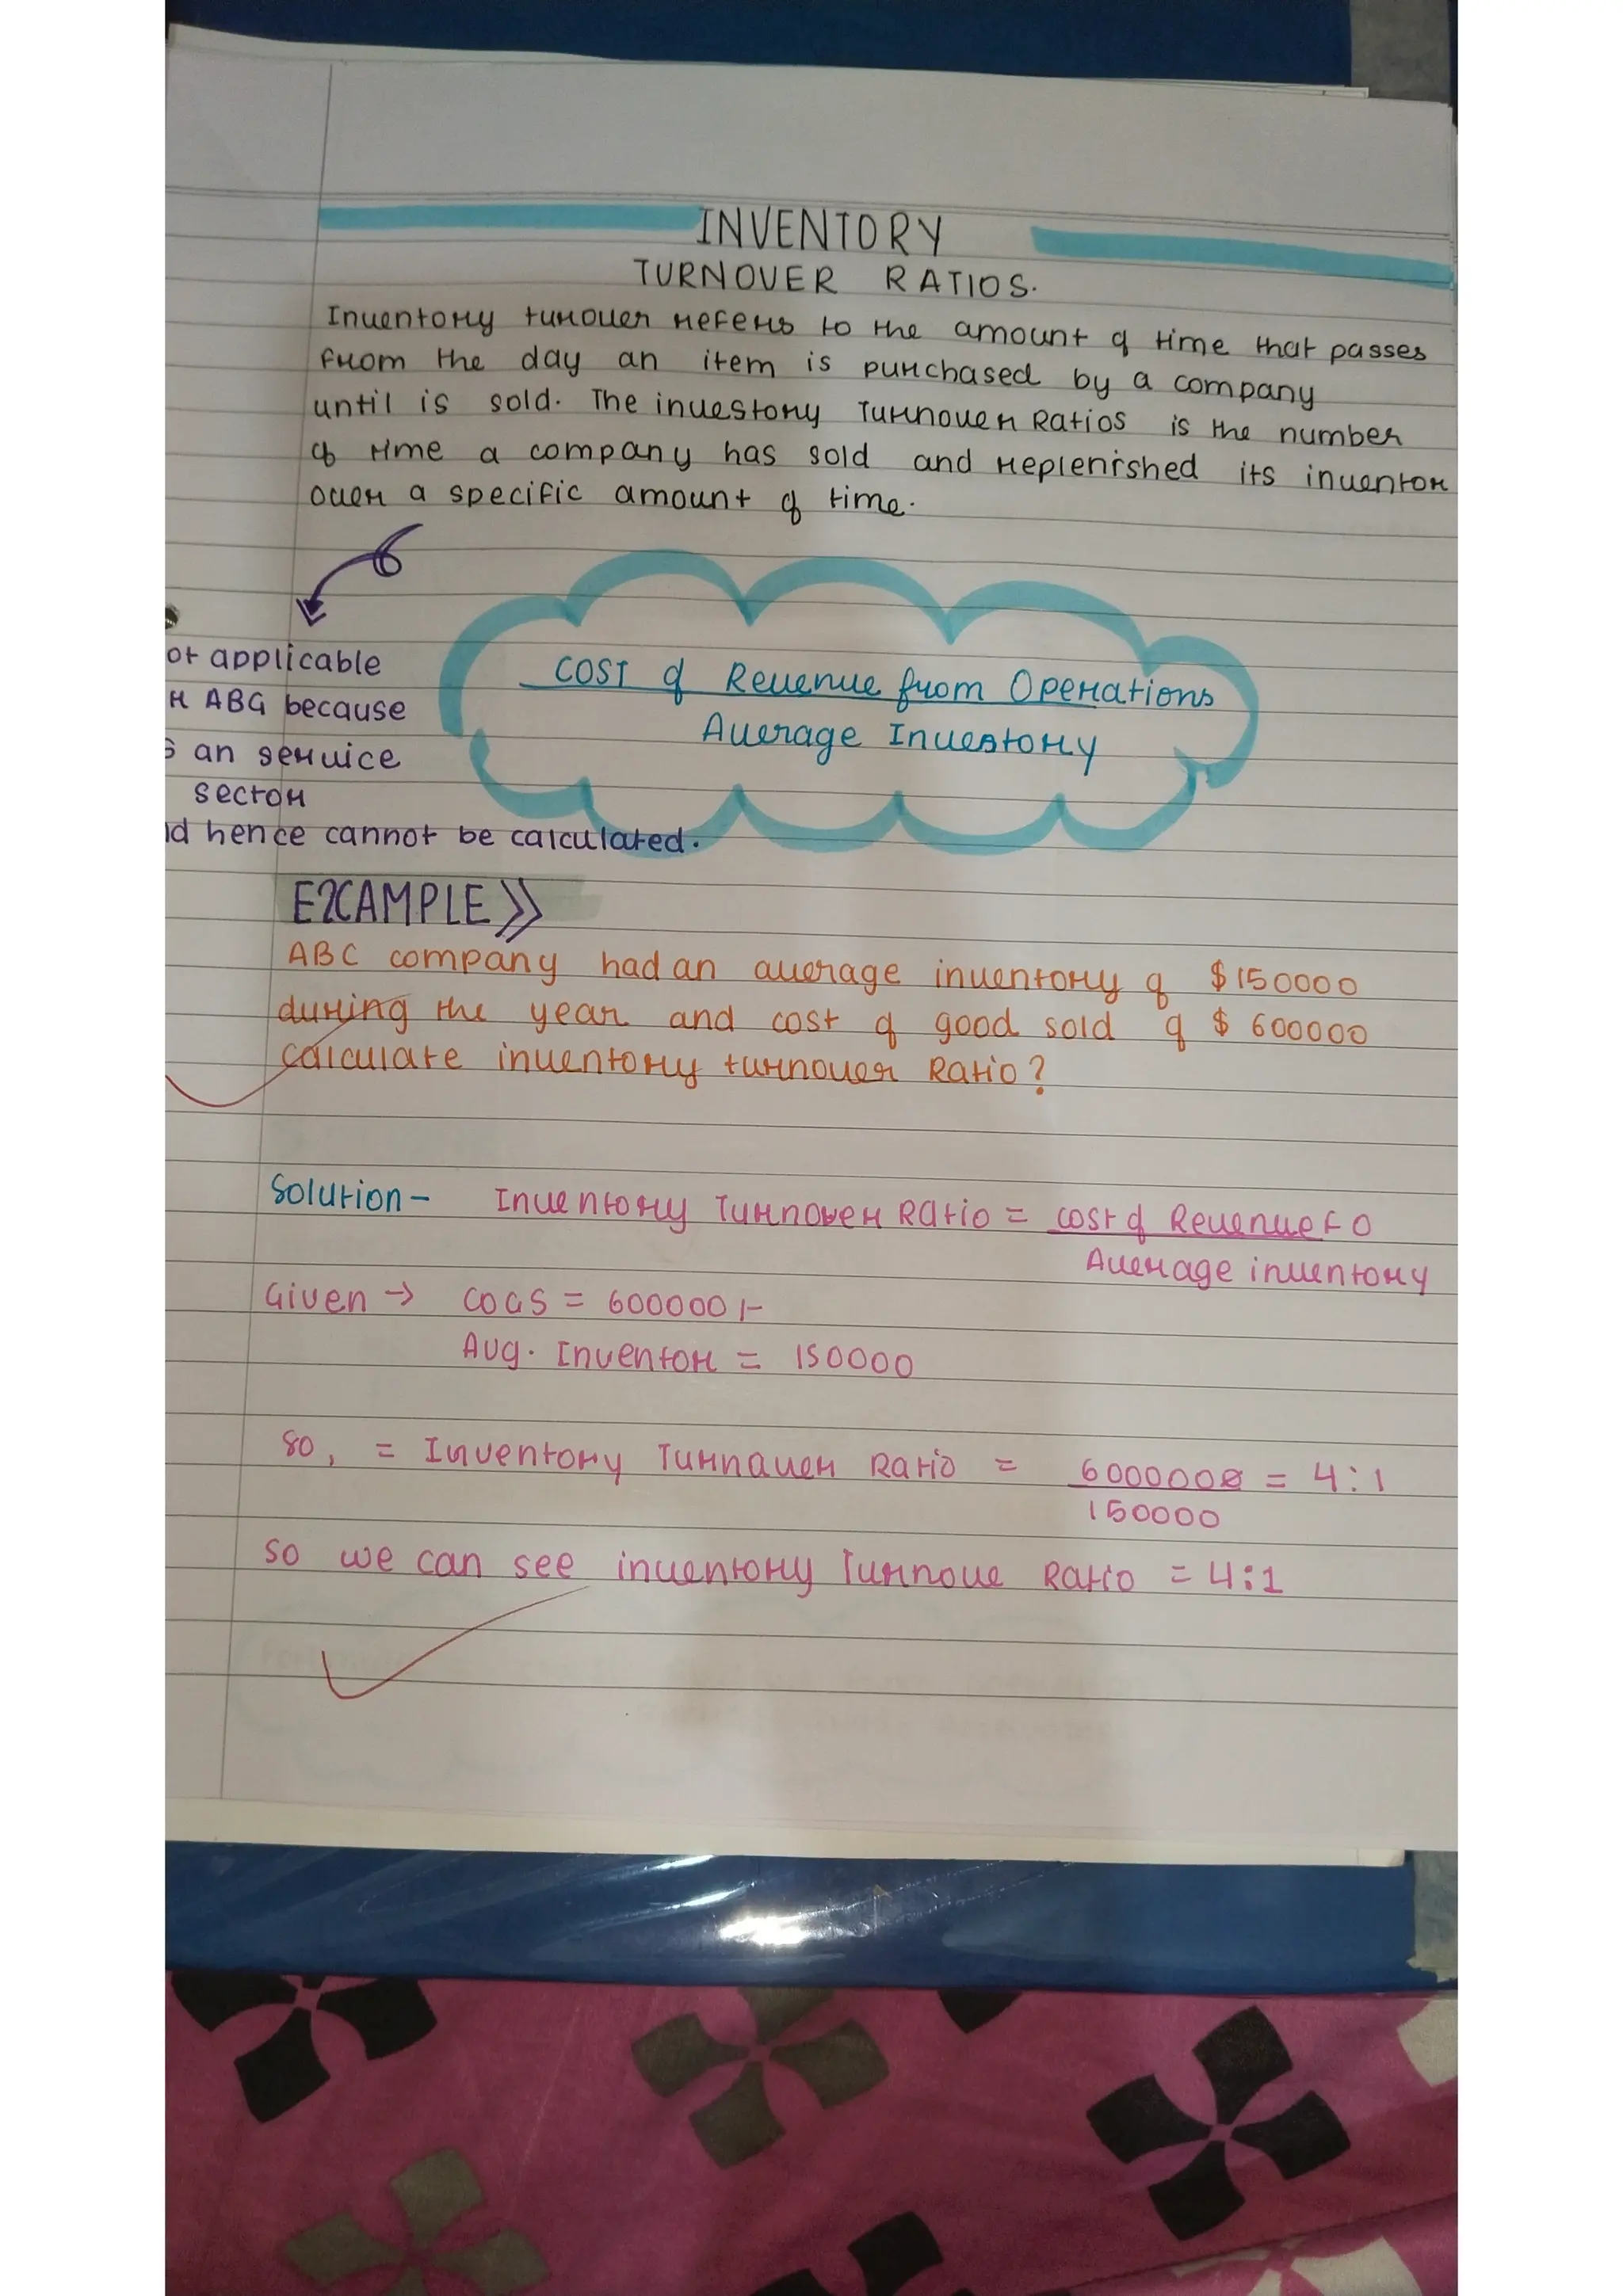 INVENTORY
TURNOVER RATIOS.
Inventory turover refers to the amount of time that passes
from the day an item is purchased by a company
until is sold. The investory Turnover Ratios is the number
of time a company has sold and replenished its inventor
over a specific amount of time.
ot applicable
r ABG because
s an service
sector
nd hence cannot be calculated.
COST of Revenue from Operations
Average Investory
EXAMPLE >>
ABC company had an average inventory of $150000
during the year and cost of good sold of $ 600000
calculate inventory turnover Ratio?
Solution - Inventory Turnover Ratio = cost of Revenue F O
Average inventory
Given → COGS = 600000 /-
Avg. Inventor = 150000
so, = Inventory Turnaver Ratio = 6000000 = 4:1
150000
so we can see inventory Turnove Ratio = 4:1